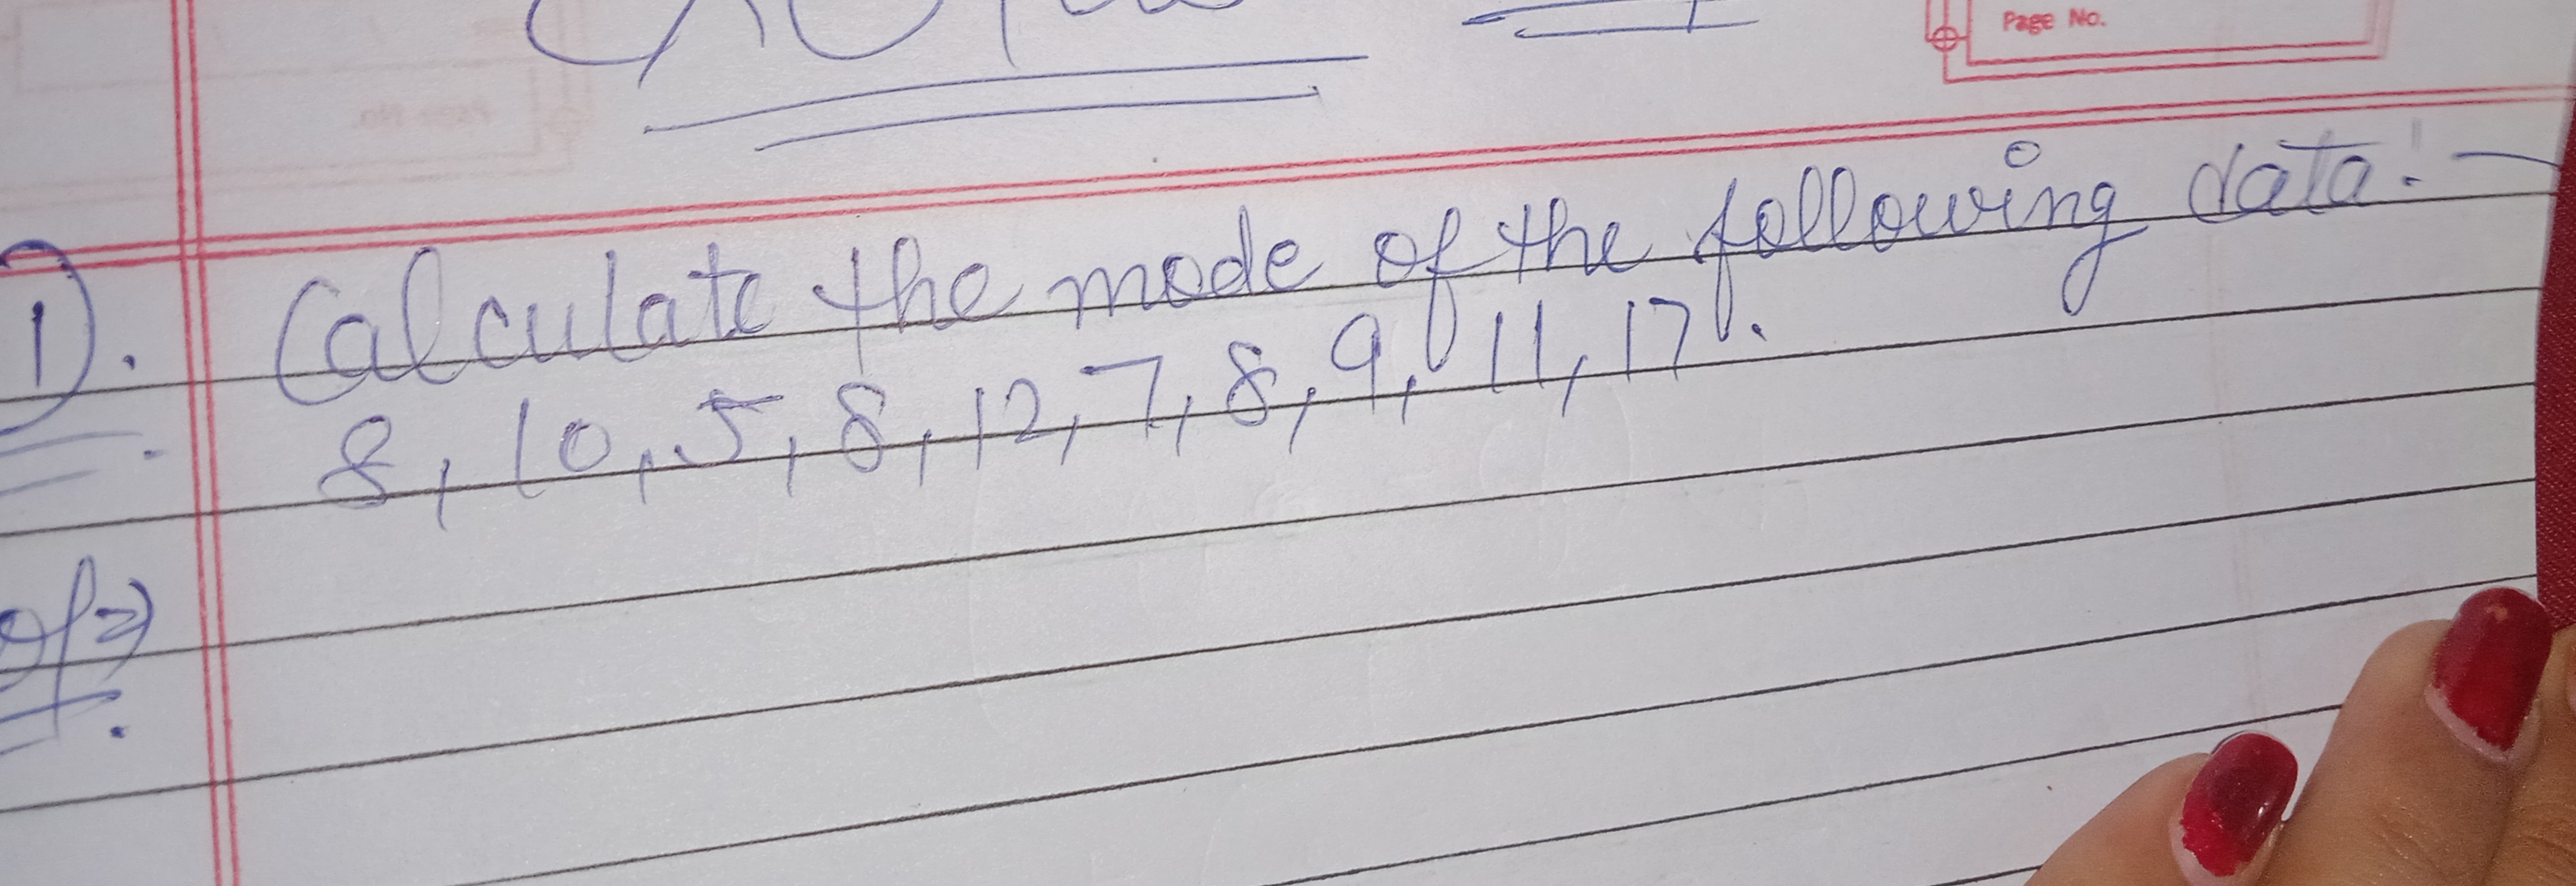 Page No.
1). Calculate the mode of the following data:-
8, 10, 5, 8, 12, 7, 8, 9, 11, 17.